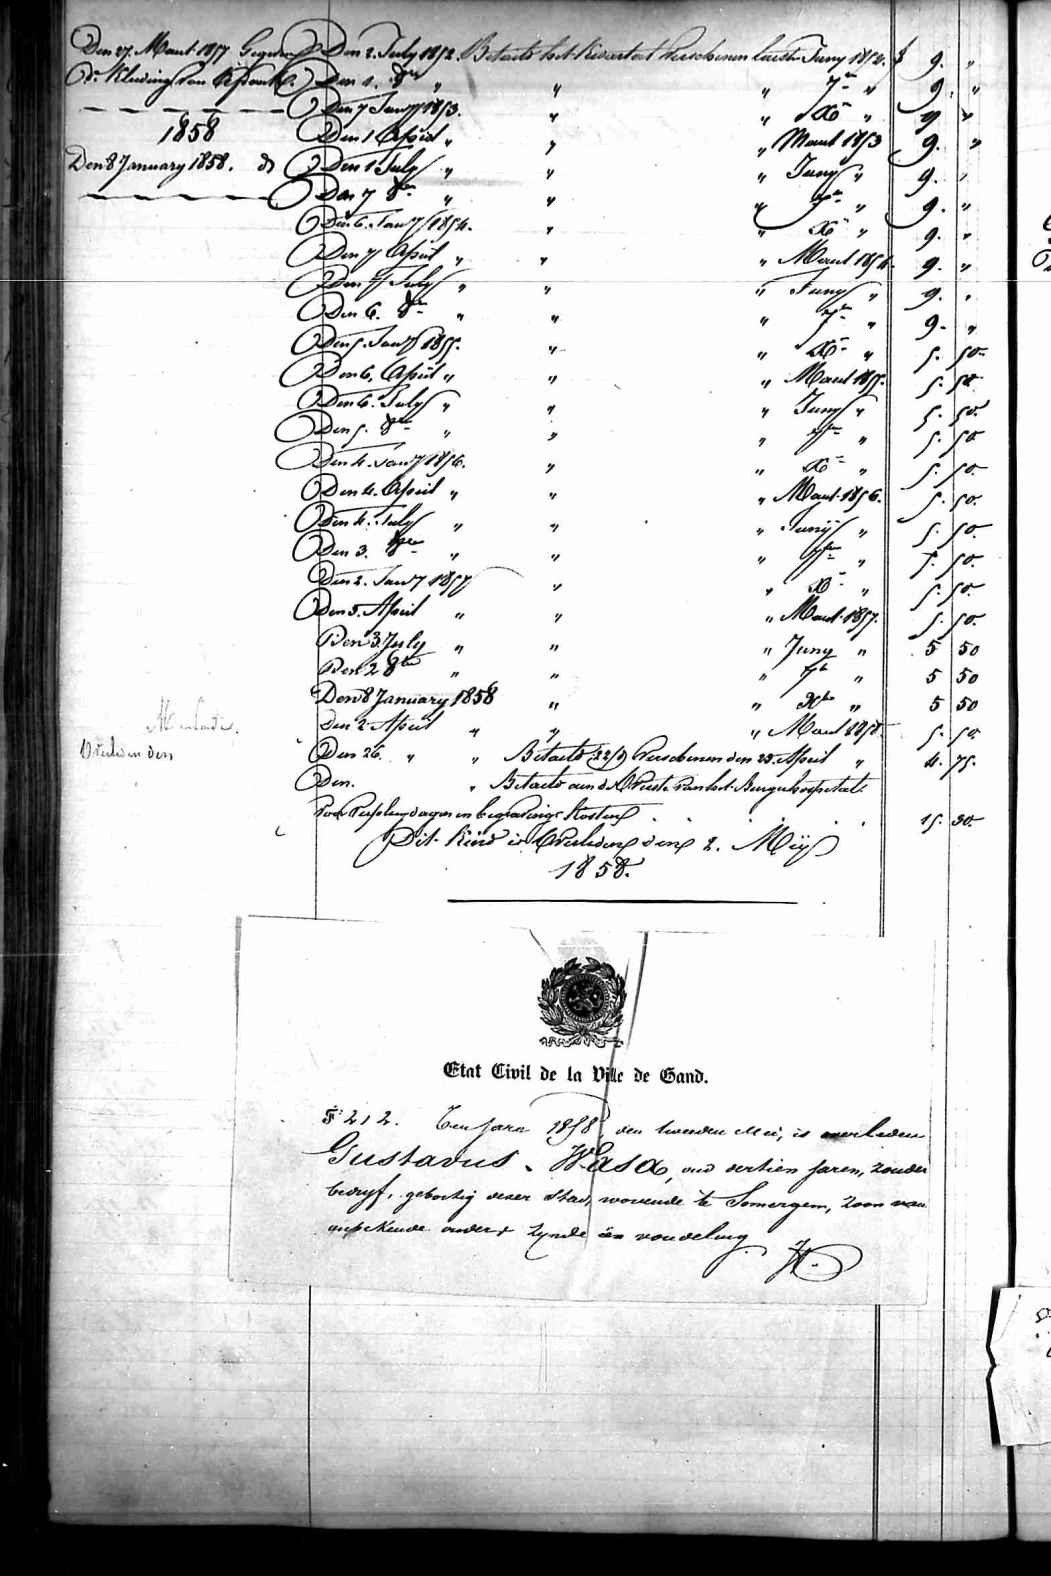 Den 27. Maart 1857 Gegeven
de Kleeding van
1858
Den 8 January 1858. do
Overleden den
Den 2. July 1852. Betaald het Kwartael Verschenen laesten Juny 1852. f 9. "
Den 1. 8re " " " 7re " 9. "
Den 7 Jany 1853. " " Xre " 9 "
Den 1 April " " " Maart 1853 9. "
Den 1 July " " " Juny " 9. "
Den 7 8re " " " 7re " 9. "
Den 6. Jany 1854. " " Xre " 9. "
Den 7 April " " " Maart 1854. 9. "
Den 7 July " " " Juny " 9. "
Den 6. 8re " " " 7re " 9. "
Den 5. Jany 1855. " " Xre " 5. 50.
Den 6. April " " " Maart 1855. 5. 50
Den 6. July " " " Juny " 5. 50.
Den 5. 8re " " " 7re " 5. 50
Den 4. Jany 1856. " " Xre " 5. 50.
Den 4. April " " " Maart 1856. 5. 50.
Den 4. July " " " Juny " 5. 50.
Den 3. 8re " " " 7re " 5. 50.
Den 2. Jany 1857 " " Xre " 5. 50.
Den 3. April " " " Maart 1857. 5. 50.
Den 3 July " " " Juny " 5 50
Den 2 8bre " " " 7bre " 5 50
Den 8 January 1858 " " Xbre " 5 50
Den 2 April " " " Maart 1858. 5. 50.
Den 26. " " Betaald Verschenen den 25. April " 4. 75.
Den. " Betaald aen d'H. van het Burger hospitael
voor verpleegdagen en begravings kosten . . . . . 15. 30.
Dit Kind is Overleden den 2. Mey
1858.
Etat Civil de la Ville de Gand.
F° 212. Ten jare 1858, den tweeden Mei, is overleden
Gustavus Wasa, oud dertien jaren, zonder
bedryf, geboortig dezer Stad, wonende te Somergem, zoon van
onbekende ouders zynde een vondeling.